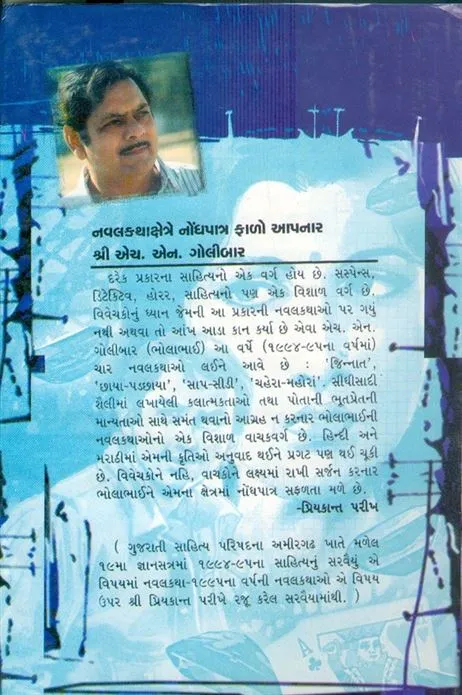 નવલકથાક્ષેત્રે નોંધપાત્ર ફાળો આપનાર
શ્રી એચ. એન. ગોલીબાર
દરેક પ્રકારના સાહિત્યનો એક વર્ગ હોય છે. સસ્પેન્સ,
ડિટેક્ટિવ, હોરર, સાહિત્યનો પણ એક વિશાળ વર્ગ છે.
વિવેચકોનું ધ્યાન જેમની આ પ્રકારની નવલકથાઓ પર ગયું
નથી અથવા તો આંખ આડા કાન કર્યા છે એવા એચ. એન.
ગોલીબાર (ભોલાભાઈ) આ વર્ષે (૧૯૯૪-૯૫ના વર્ષમાં)
ચાર નવલકથાઓ લઈને આવે છે : 'જિન્નાત',
'છાયા-પડછાયા', 'સાપ-સીડી', 'ચહેરા-મહોરાં'. સીધીસાદી
શૈલીમાં લખાયેલી કલાત્મકતાઓ તથા પોતાની ભૂતપ્રેતની
માન્યતાઓ સાથે સંમત થવાનો આગ્રહ ન કરનાર ભોલાભાઈની
નવલકથાઓનો એક વિશાળ વાચકવર્ગ છે. હિન્દી અને
મરાઠીમાં એમની કૃતિઓ અનુવાદ થઈને પ્રગટ પણ થઈ ચૂકી
છે. વિવેચકોને નહિ, વાચકોને લક્ષ્યમાં રાખી સર્જન કરનાર
ભોલાભાઈને એમના ક્ષેત્રમાં નોંધપાત્ર સફળતા મળે છે.
-પ્રિયકાન્ત પરીખ
( ગુજરાતી સાહિત્ય પરિષદના અમીરગઢ ખાતે મળેલ
૧૯મા જ્ઞાનસત્રમાં ૧૯૯૪-૯૫ના સાહિત્યનું સરવૈયું એ
વિષયમાં નવલકથા-૧૯૯૫ના વર્ષની નવલકથાઓ એ વિષય
ઉપર શ્રી પ્રિયકાન્ત પરીખે રજૂ કરેલ સરવૈયામાંથી. )